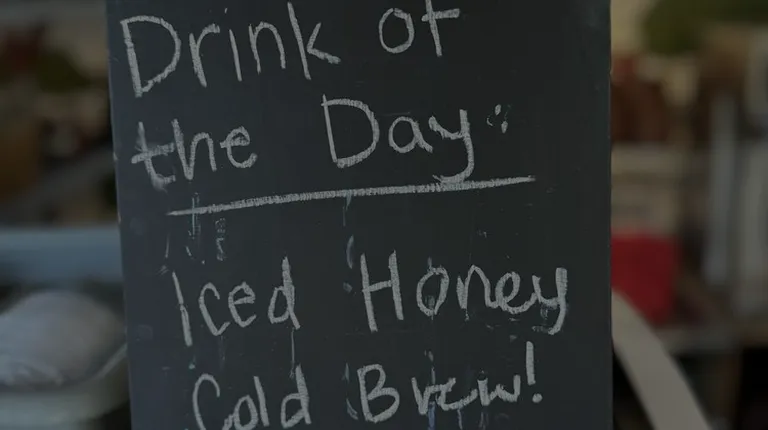 Drink of
the Day:
Iced Honey
Cold Brew!